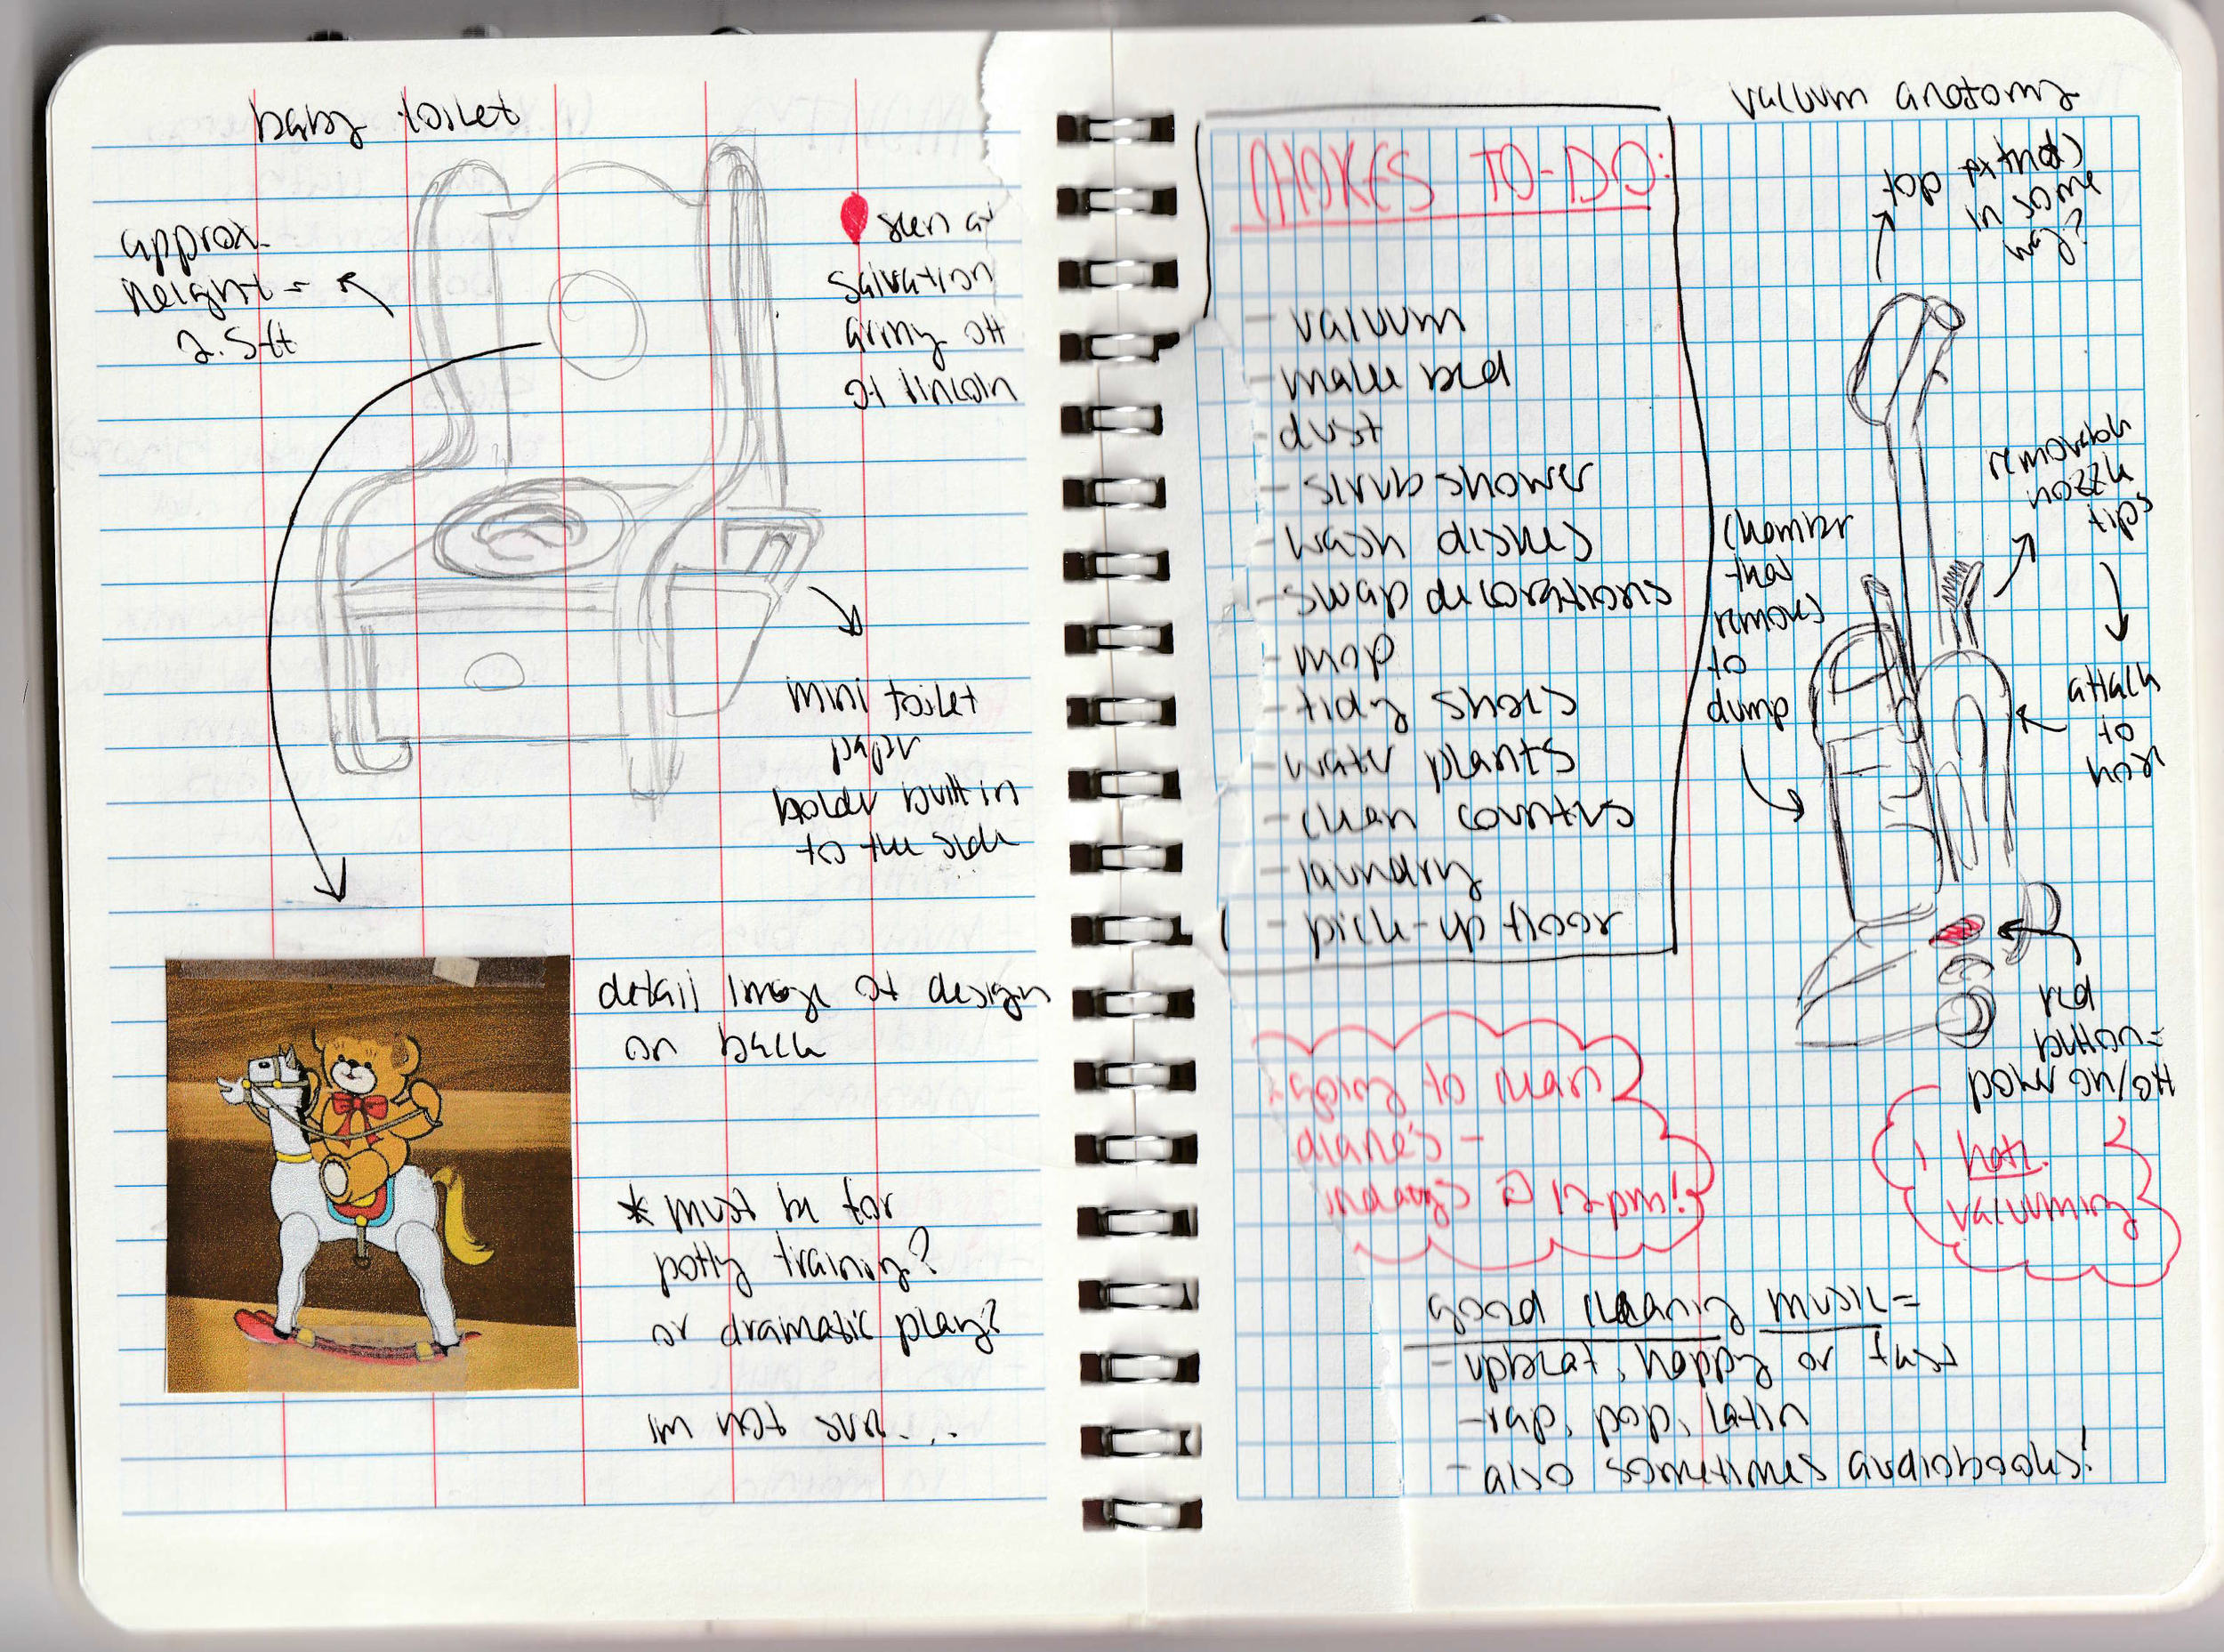 baby toilet
approx.
height =
2.5ft
seen at
salvation
army off
of lincoln
mini toilet
paper
holder built in
to the side
detail image of design
on back
* must be for
potty training?
or dramatic play?
im not sure...
CHORES TO-DO:
- vacuum
- make bed
- dust
- scrub shower
- wash dishes
- swap decorations
- mop
- tidy shoes
- water plants
- clean counters
- laundry
- pick-up floor
going to clean
diane's -
@ 12pm!
vacuum anatomy
top extend
in some
way?
removable
nozzle
tips
attach
to
chamber
that
removes
to
dump
red
button=
power on/off
I hate
vacuuming
good cleaning music=
- upbeat, happy or fast
- rap, pop, latin
- also sometimes audiobooks!